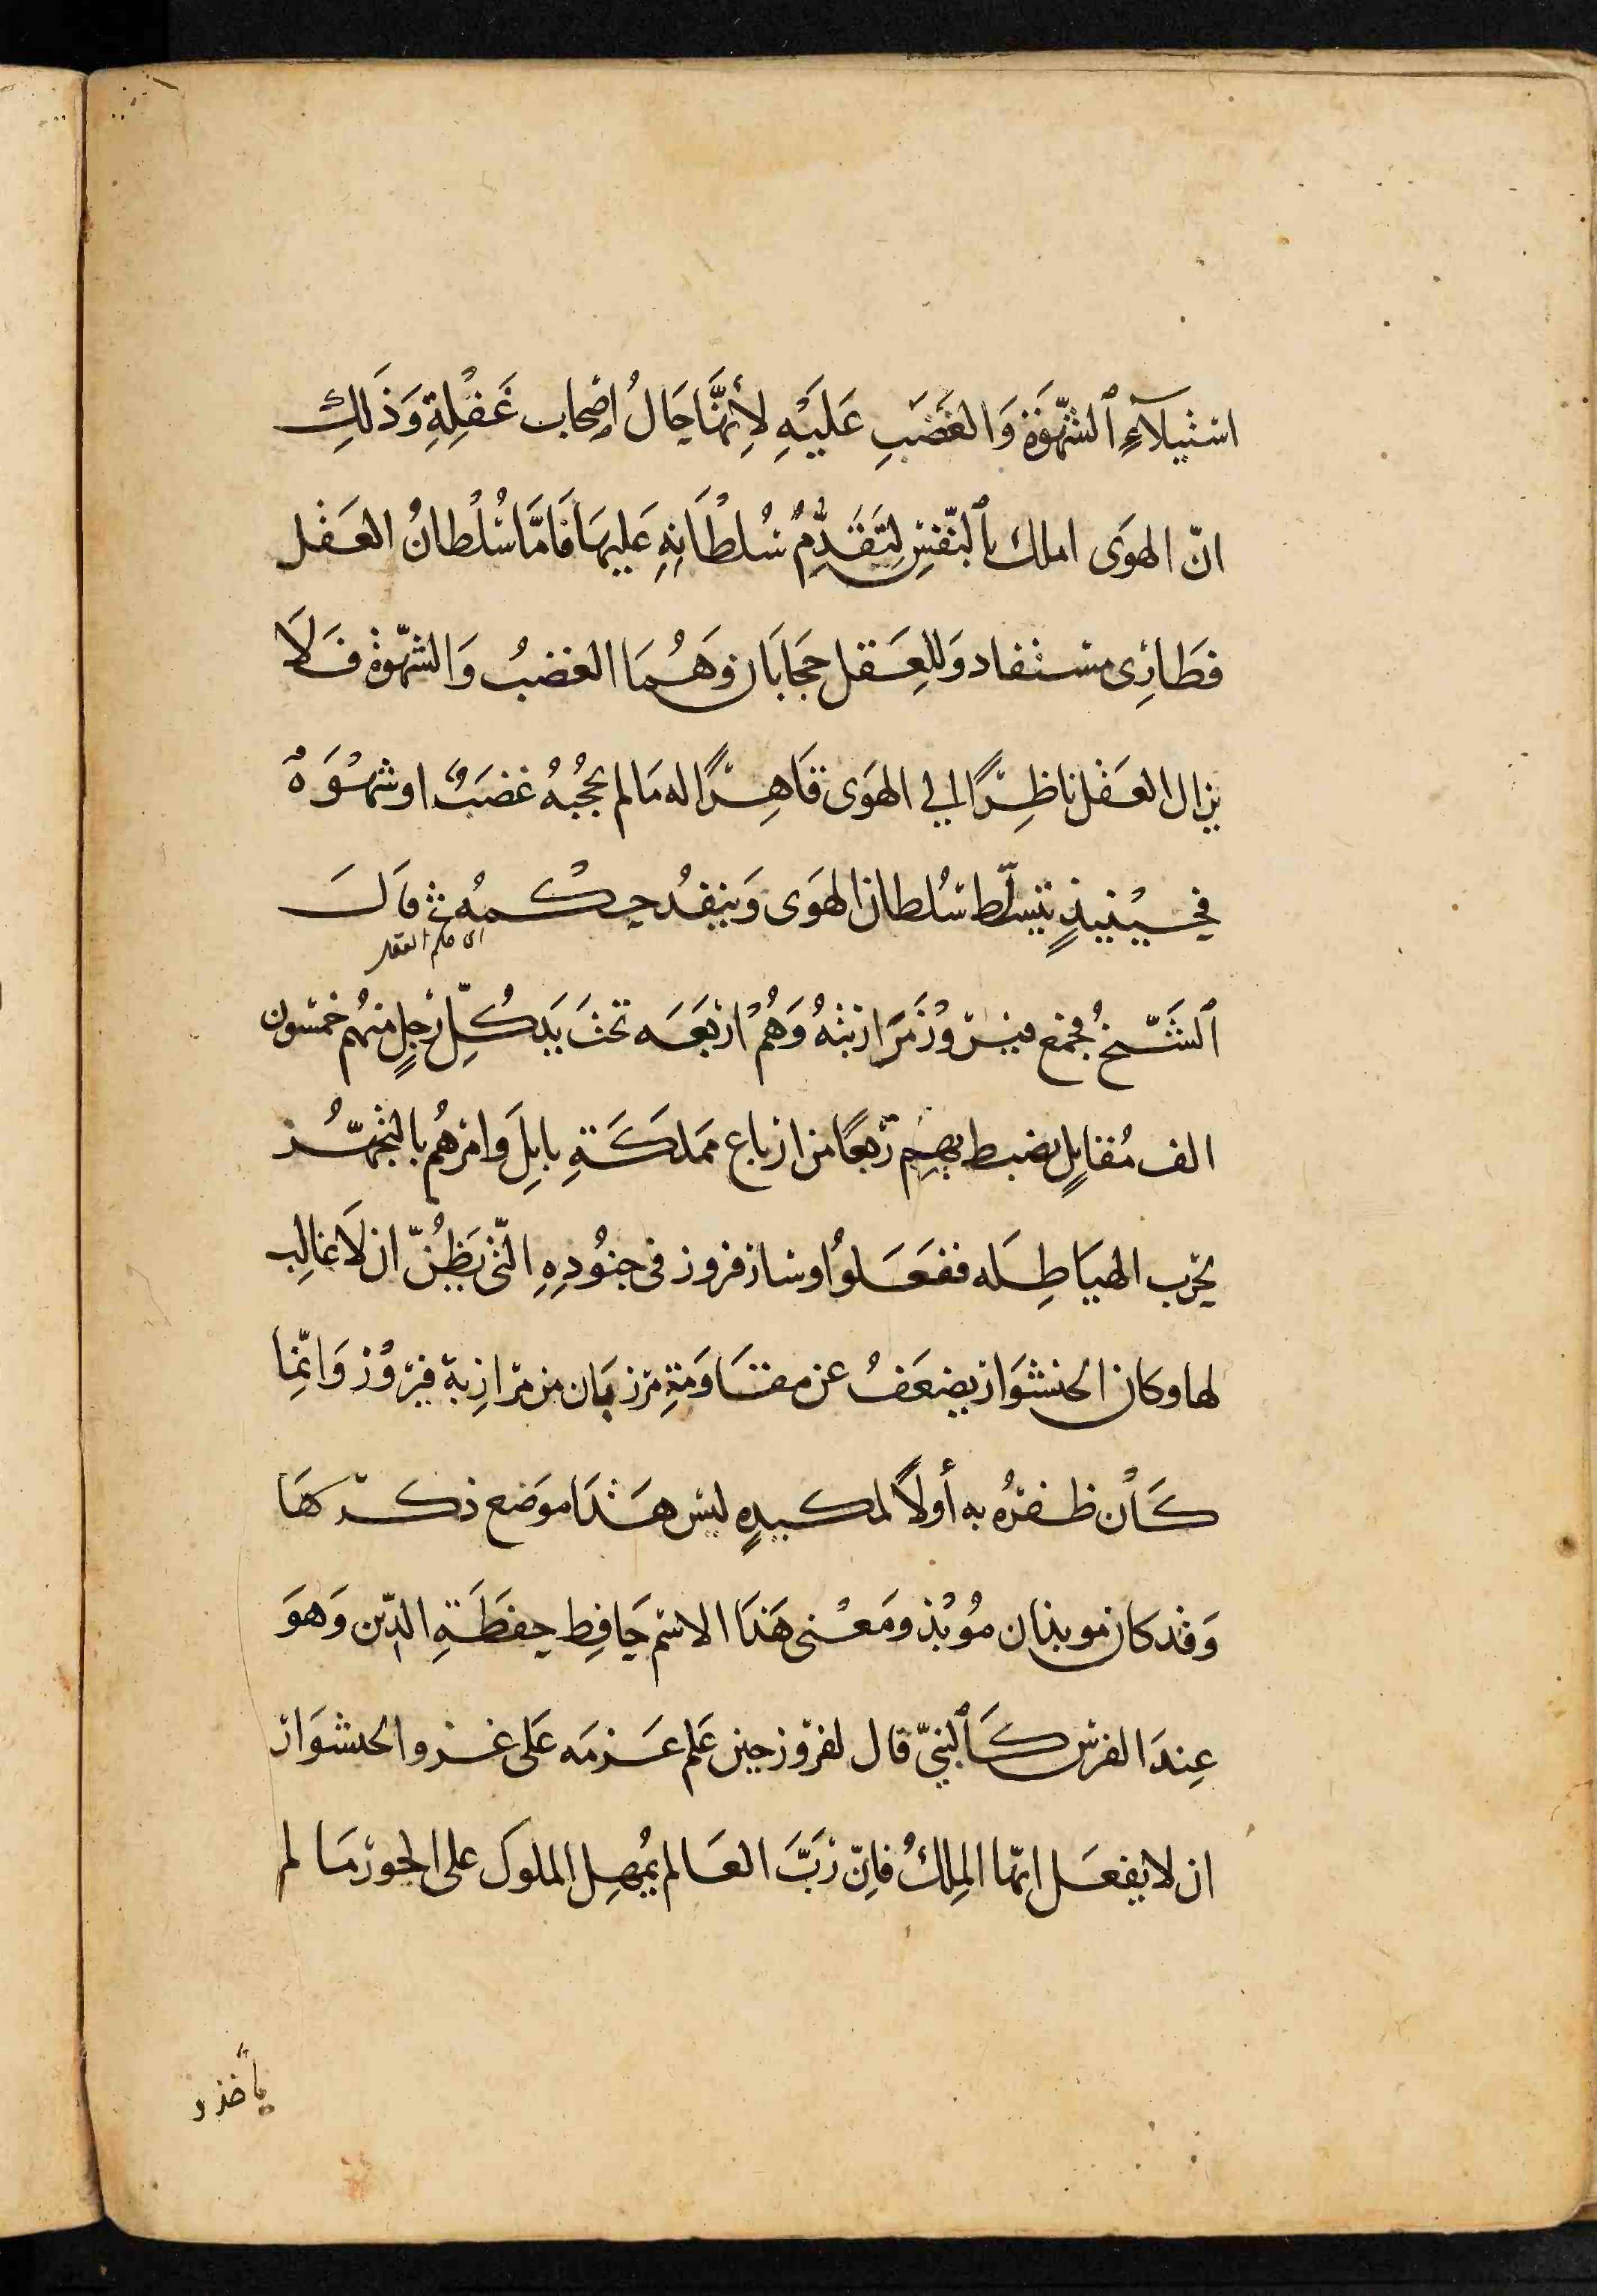 استيلآءِ ٱلشّهْوَةِ وَالغَضَبِ عَليَهِ لأِنهَّا حَالُ اصْحاب غَفْلِةِ وَذَلكِ
انّ الهوَى املك بٱلنّفسِ لِتَقَدُّمِ سُلطَانِهِ عَليهَا فَامَّا سُلْطانُ العَقْل
فطَارِى مستفاد وَللِعَقل حجَابَان وَهُمَا الغضبُ وَالشهّوة فَلاَ
يزال العَقْل ناظِرًا الى الهوَى قَاهِرًا له مَا لم يحجُبهُ غضَبٌ او شهْوَةٌ
فحيْنيذٍ يتسلّط سُلطان الهوَى وَينفُد حكْمُهُ ثم قاَلَ
اى حكم العقل
ٱلشَّيخُ فجمَع فيْروْزَ مَرَازبتهُ وَهُمْ ارْبَعَه تحتَ يَد كُلّ رَجلٍ منهُم خمسُون
الف مُقاتِلٍ يضبط بهِم رْبعًا من ارباع ممَلكَةِ بابِلَ وامرَهُم بالتّجهُّز
لحرْب الهيَاطِلَه ففعَلوُا وسار فروز فى جنُودِهِ التّى يَظُنّ ان لاَ غالِب
لها وكان الخشنوَاز يضعَفُ عن مقاوَمَةِ مرْزبَان من مرَازِبة فيرْوْز وَانمّا
كَاْن ظفرُه به أولاً لمكيدةٍ ليس هَذَا موَضع ذكرْهَا
وَقد كان موبذان مُوْبْذ ومَعْنى هَذَا الاسْم حَافِظ حفظَةِ الدّين وَهوَ
عِندَ الفرْس كَٱلنبيّ قال لفرْوز حين عَلم عَزمَه عَلى غزو الخشنوَاز
ان لا يفعَل ايهّا المِلكُ فاِنّ رَبَّ العَالم يُمهِل الملوكَ على الجورْ مَا لم
يأخذو